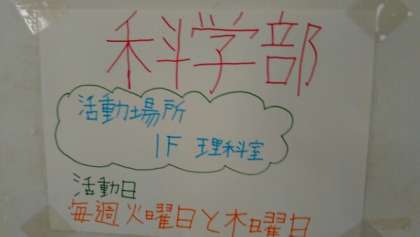 科学部
活動場所
1F 理科室
活動日
毎週火曜日と木曜日